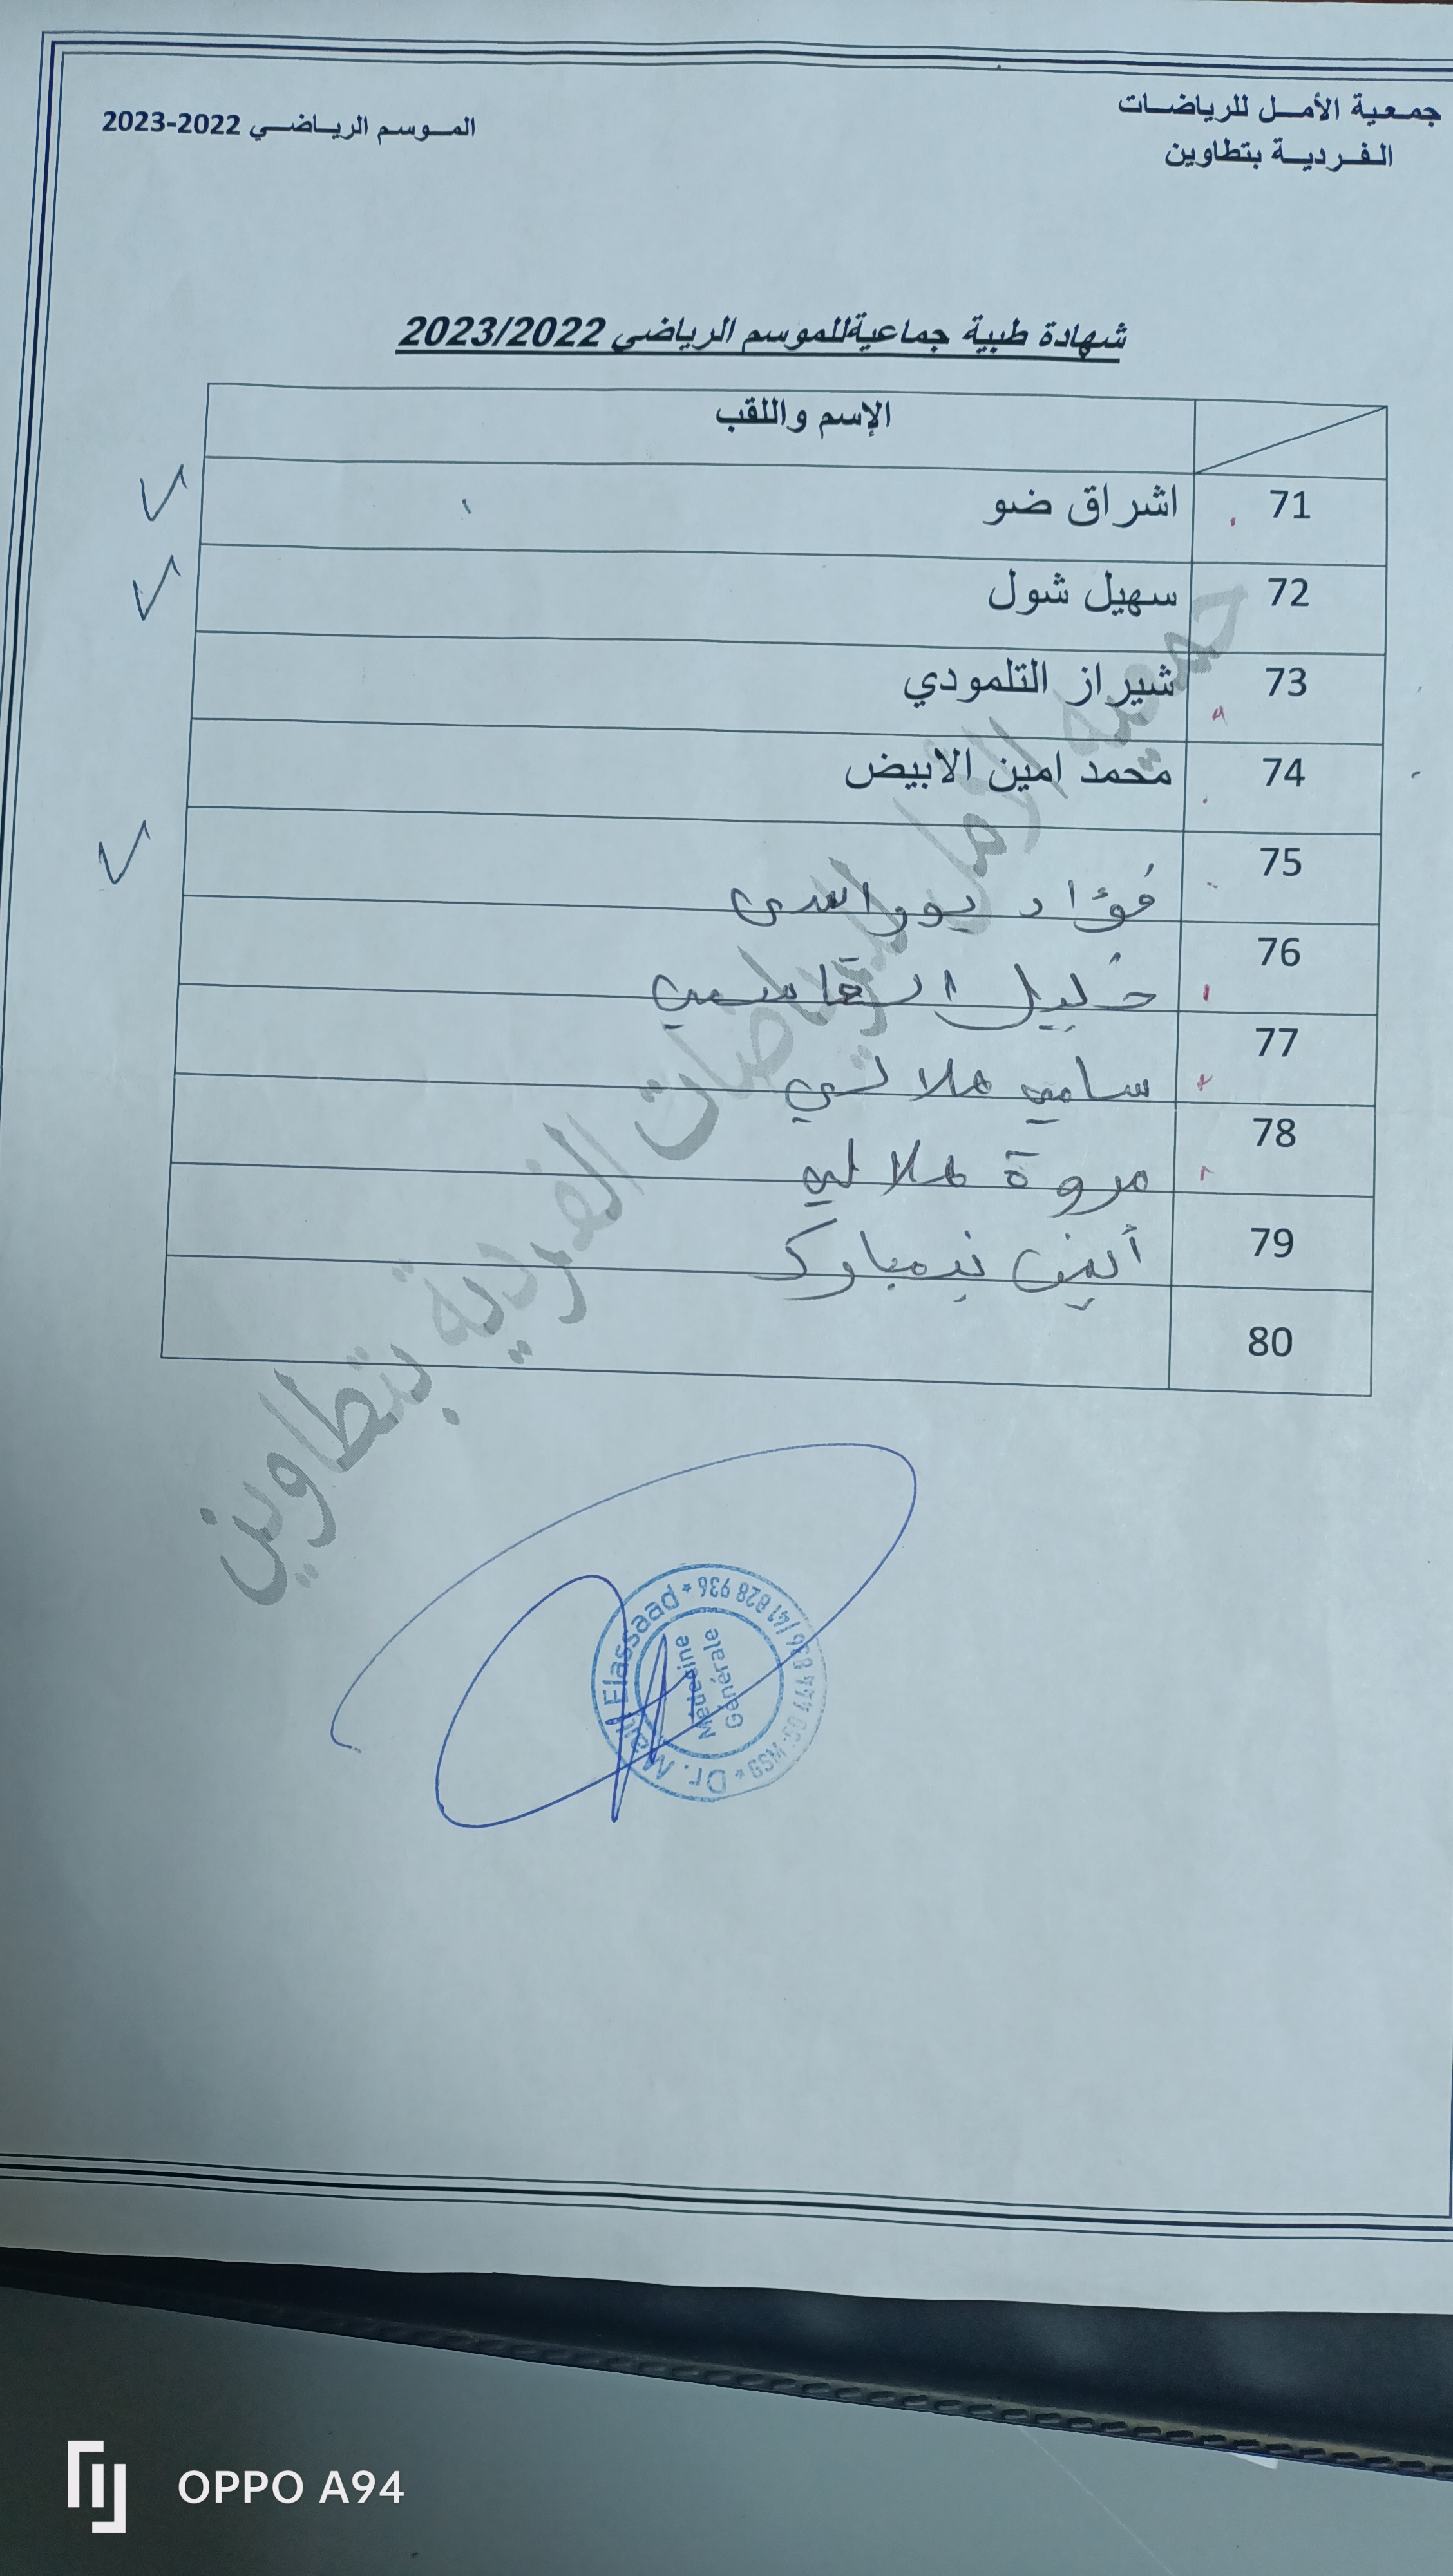 جمعية الأمل للرياضات
الفردية بتطاوين
الموسم الرياضي 2022-2023
شهادة طبية جماعيةللموسم الرياضي 2023/2022
الإسم واللقب
71 اشراق ضو
72 سهيل شول
73 شيراز التلمودي
74 محمد امين الابيض
75 فؤاد
76 خليل القاسمي
77 سامي هلالي
78 مروة هلالي
79 أيمن بنمبارك
80
جمعية الأمل للرياضات الفردية بتطاوين
Dr. Elassaad
Médecine
Générale
OPPO A94